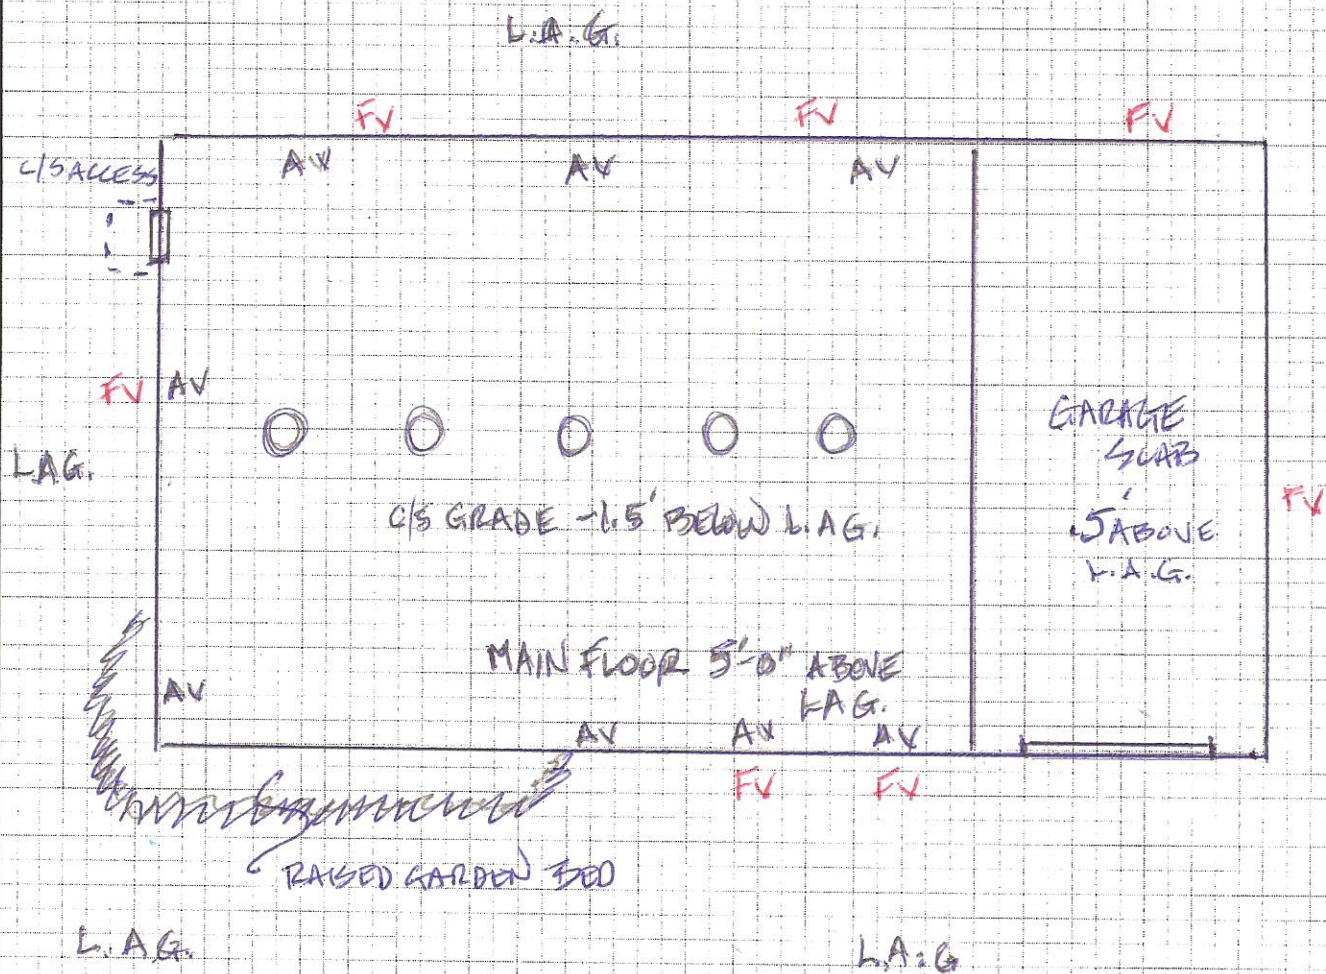 L.A.G.
FV FV FV
C/S ACCESS AV AV AV
FV AV
L.A.G.
C/S GRADE -1.5' BELOW L.A.G.
GARAGE
SLAB
.5' ABOVE
L.A.G.
FV
MAIN FLOOR 5'-0" ABOVE
L.A.G.
AV
AV AV AV
FV FV
RAISED GARDEN BED
L.A.G. L.A.G